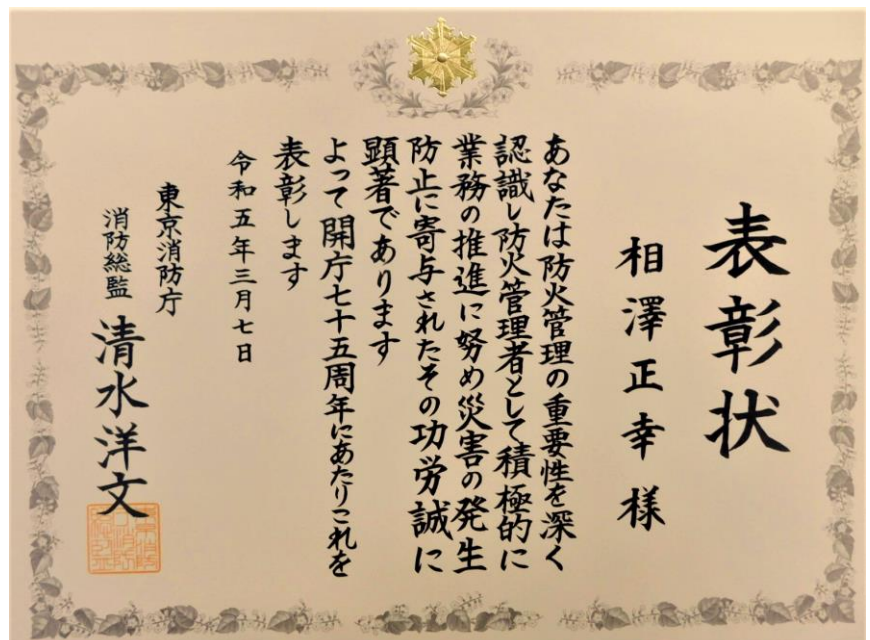 表彰状
相澤正幸様
あなたは防火管理の重要性を深く
認識し防火管理者として積極的に
業務の推進に努め災害の発生
防止に寄与されたその功労誠に
顕著であります
よって開庁七十五周年にあたりこれを
表彰します
令和五年三月七日
東京消防庁
消防総監 清水洋文